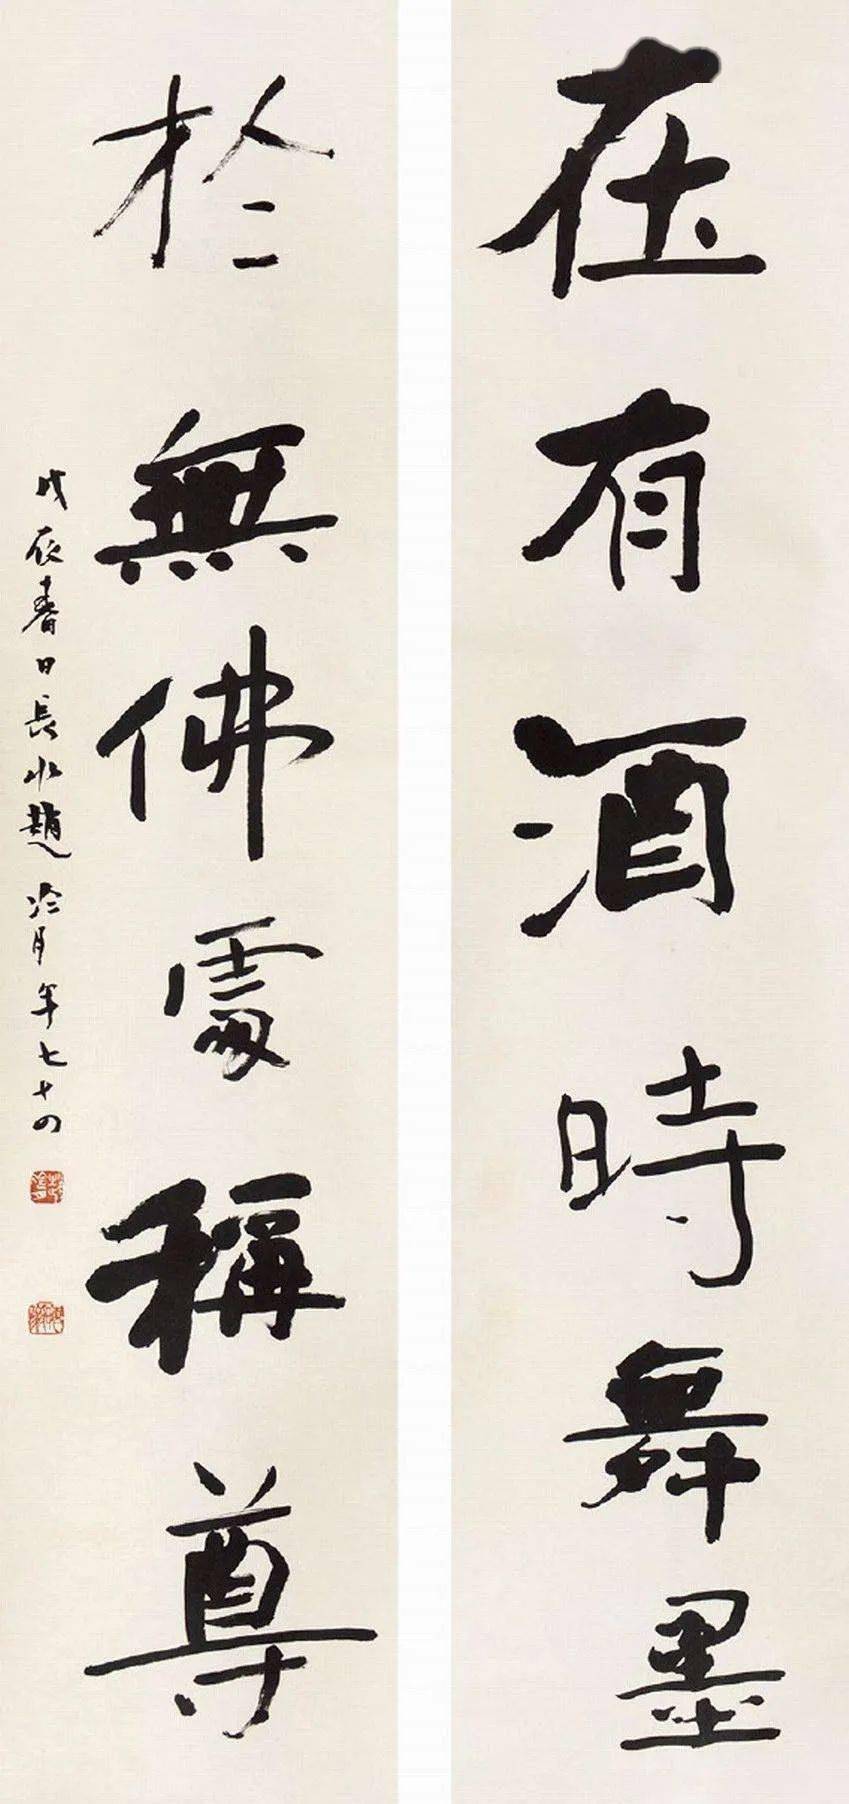 在有酒時舞墨
於無佛處稱尊
戊辰春日長水趙冷月年七十四